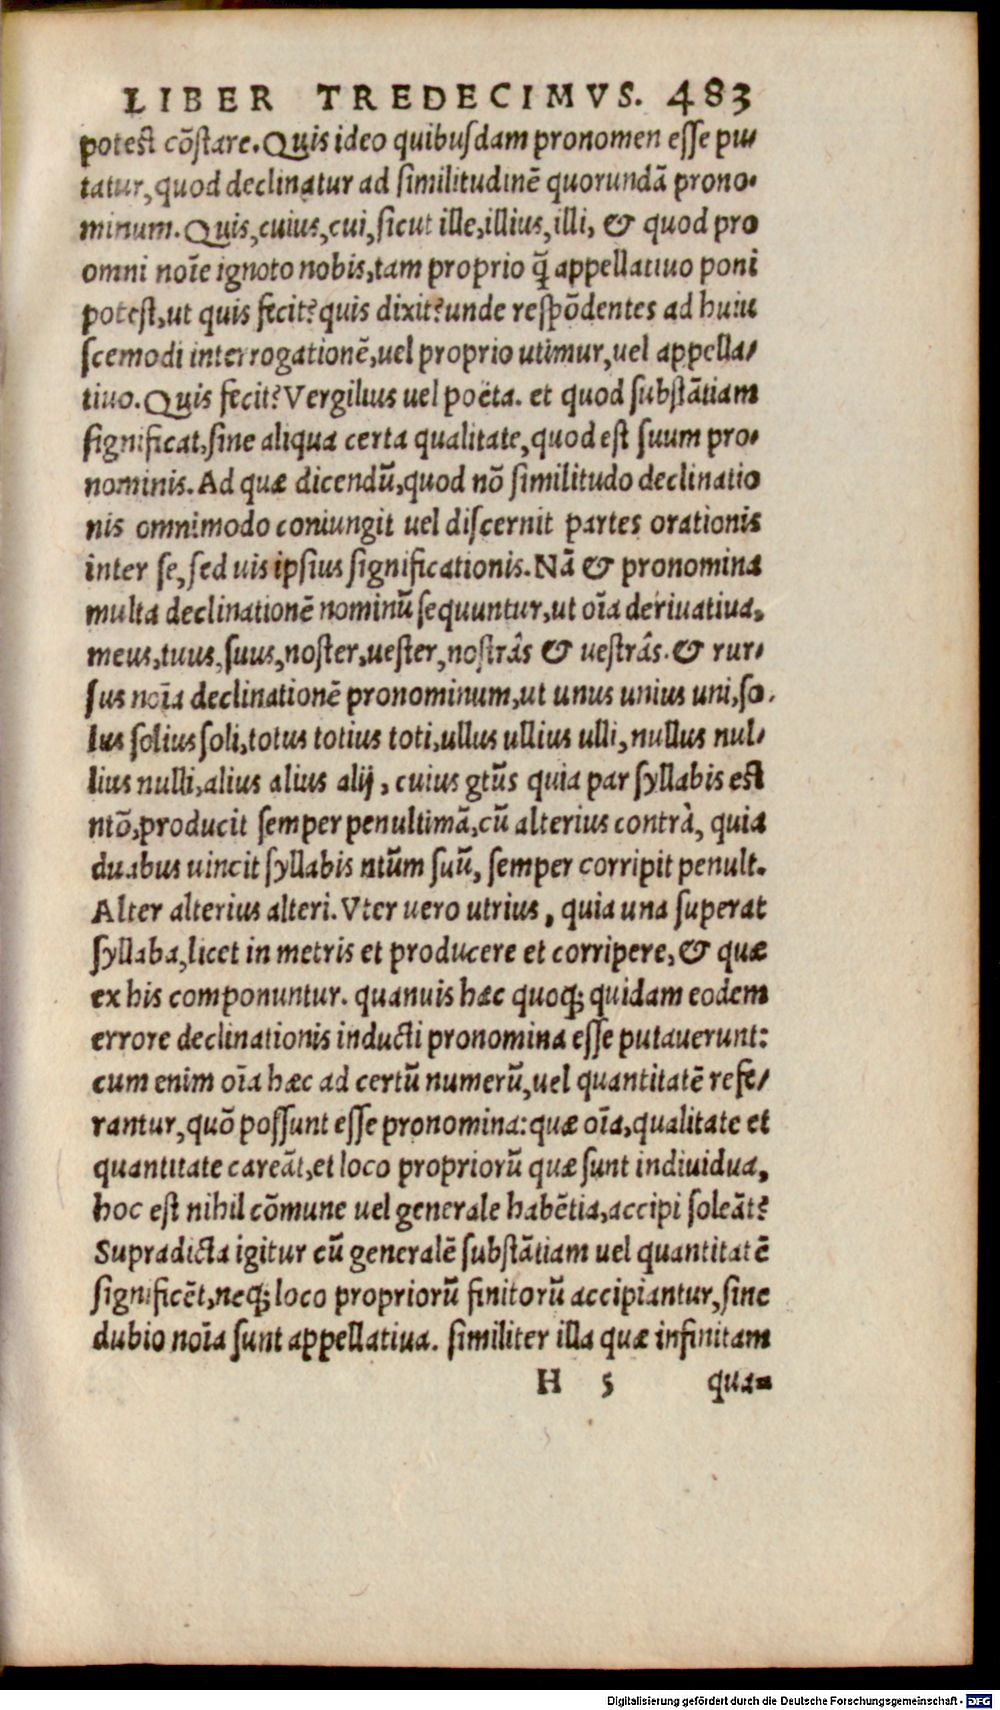 LIBER TREDECIMVS. 483
potest cōstare. Quis ideo quibusdam pronomen esse pu-
tatur, quod declinatur ad similitudinē quorundā prono-
minum. Quis, cuius, cui, sicut ille, illius, illi, & quod pro
omni noīe ignoto nobis, tam proprio q̄ appellatiuo poni
potest, ut quis fecit? quis dixit? unde respōdentes ad huiu
scemodi interrogationē, uel proprio utimur, uel appella-
tiuo. Quis fecit? Vergilius uel poëta. et quod substātiam
significat, sine aliqua certa qualitate, quod est suum pro-
nominis. Ad quæ dicendū, quod nō similitudo declinatio
nis omnimodo coniungit uel discernit partes orationis
inter se, sed uis ipsius significationis. Nā & pronomina
multa declinationē nominū sequuntur, ut oīa deriuatiua,
meus, tuus, suus, noster, uester, nostrâs & uestrâs. & rur-
sus noīa declinationē pronominum, ut unus unius uni, so-
lus solius soli, totus totius toti, ullus ullius ulli, nullus nul-
lius nulli, alius alius alij, cuius gtūs quia par syllabis est
ntō, producit semper penultimā, cū alterius contrà, quia
duabus uincit syllabis ntūm suū, semper corripit penult.
Alter alterius alteri. Vter uero utrius, quia una superat
syllaba, licet in metris et producere et corripere, & quæ
ex his componuntur. quanuis hæc quoq; quidam eodem
errore declinationis inducti pronomina esse putauerunt:
cum enim oīa hæc ad certū numerū, uel quantitatē refe-
rantur, quō possunt esse pronomina: quæ oīa, qualitate et
quantitate careāt, et loco propriorū quæ sunt indiuidua,
hoc est nihil cōmune uel generale habētia, accipi soleāt?
Supradicta igitur cū generalē substātiam uel quantitatē
significēt, neq; loco propriorū finitorū accipiantur, sine
dubio noīa sunt appellatiua. similiter illa quæ infinitam
H 5 qua-
Digitalisierung gefördert durch die Deutsche Forschungsgemeinschaft - DFG